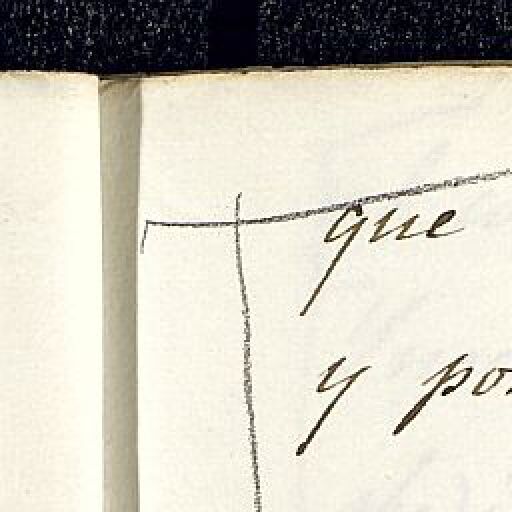 que
y po